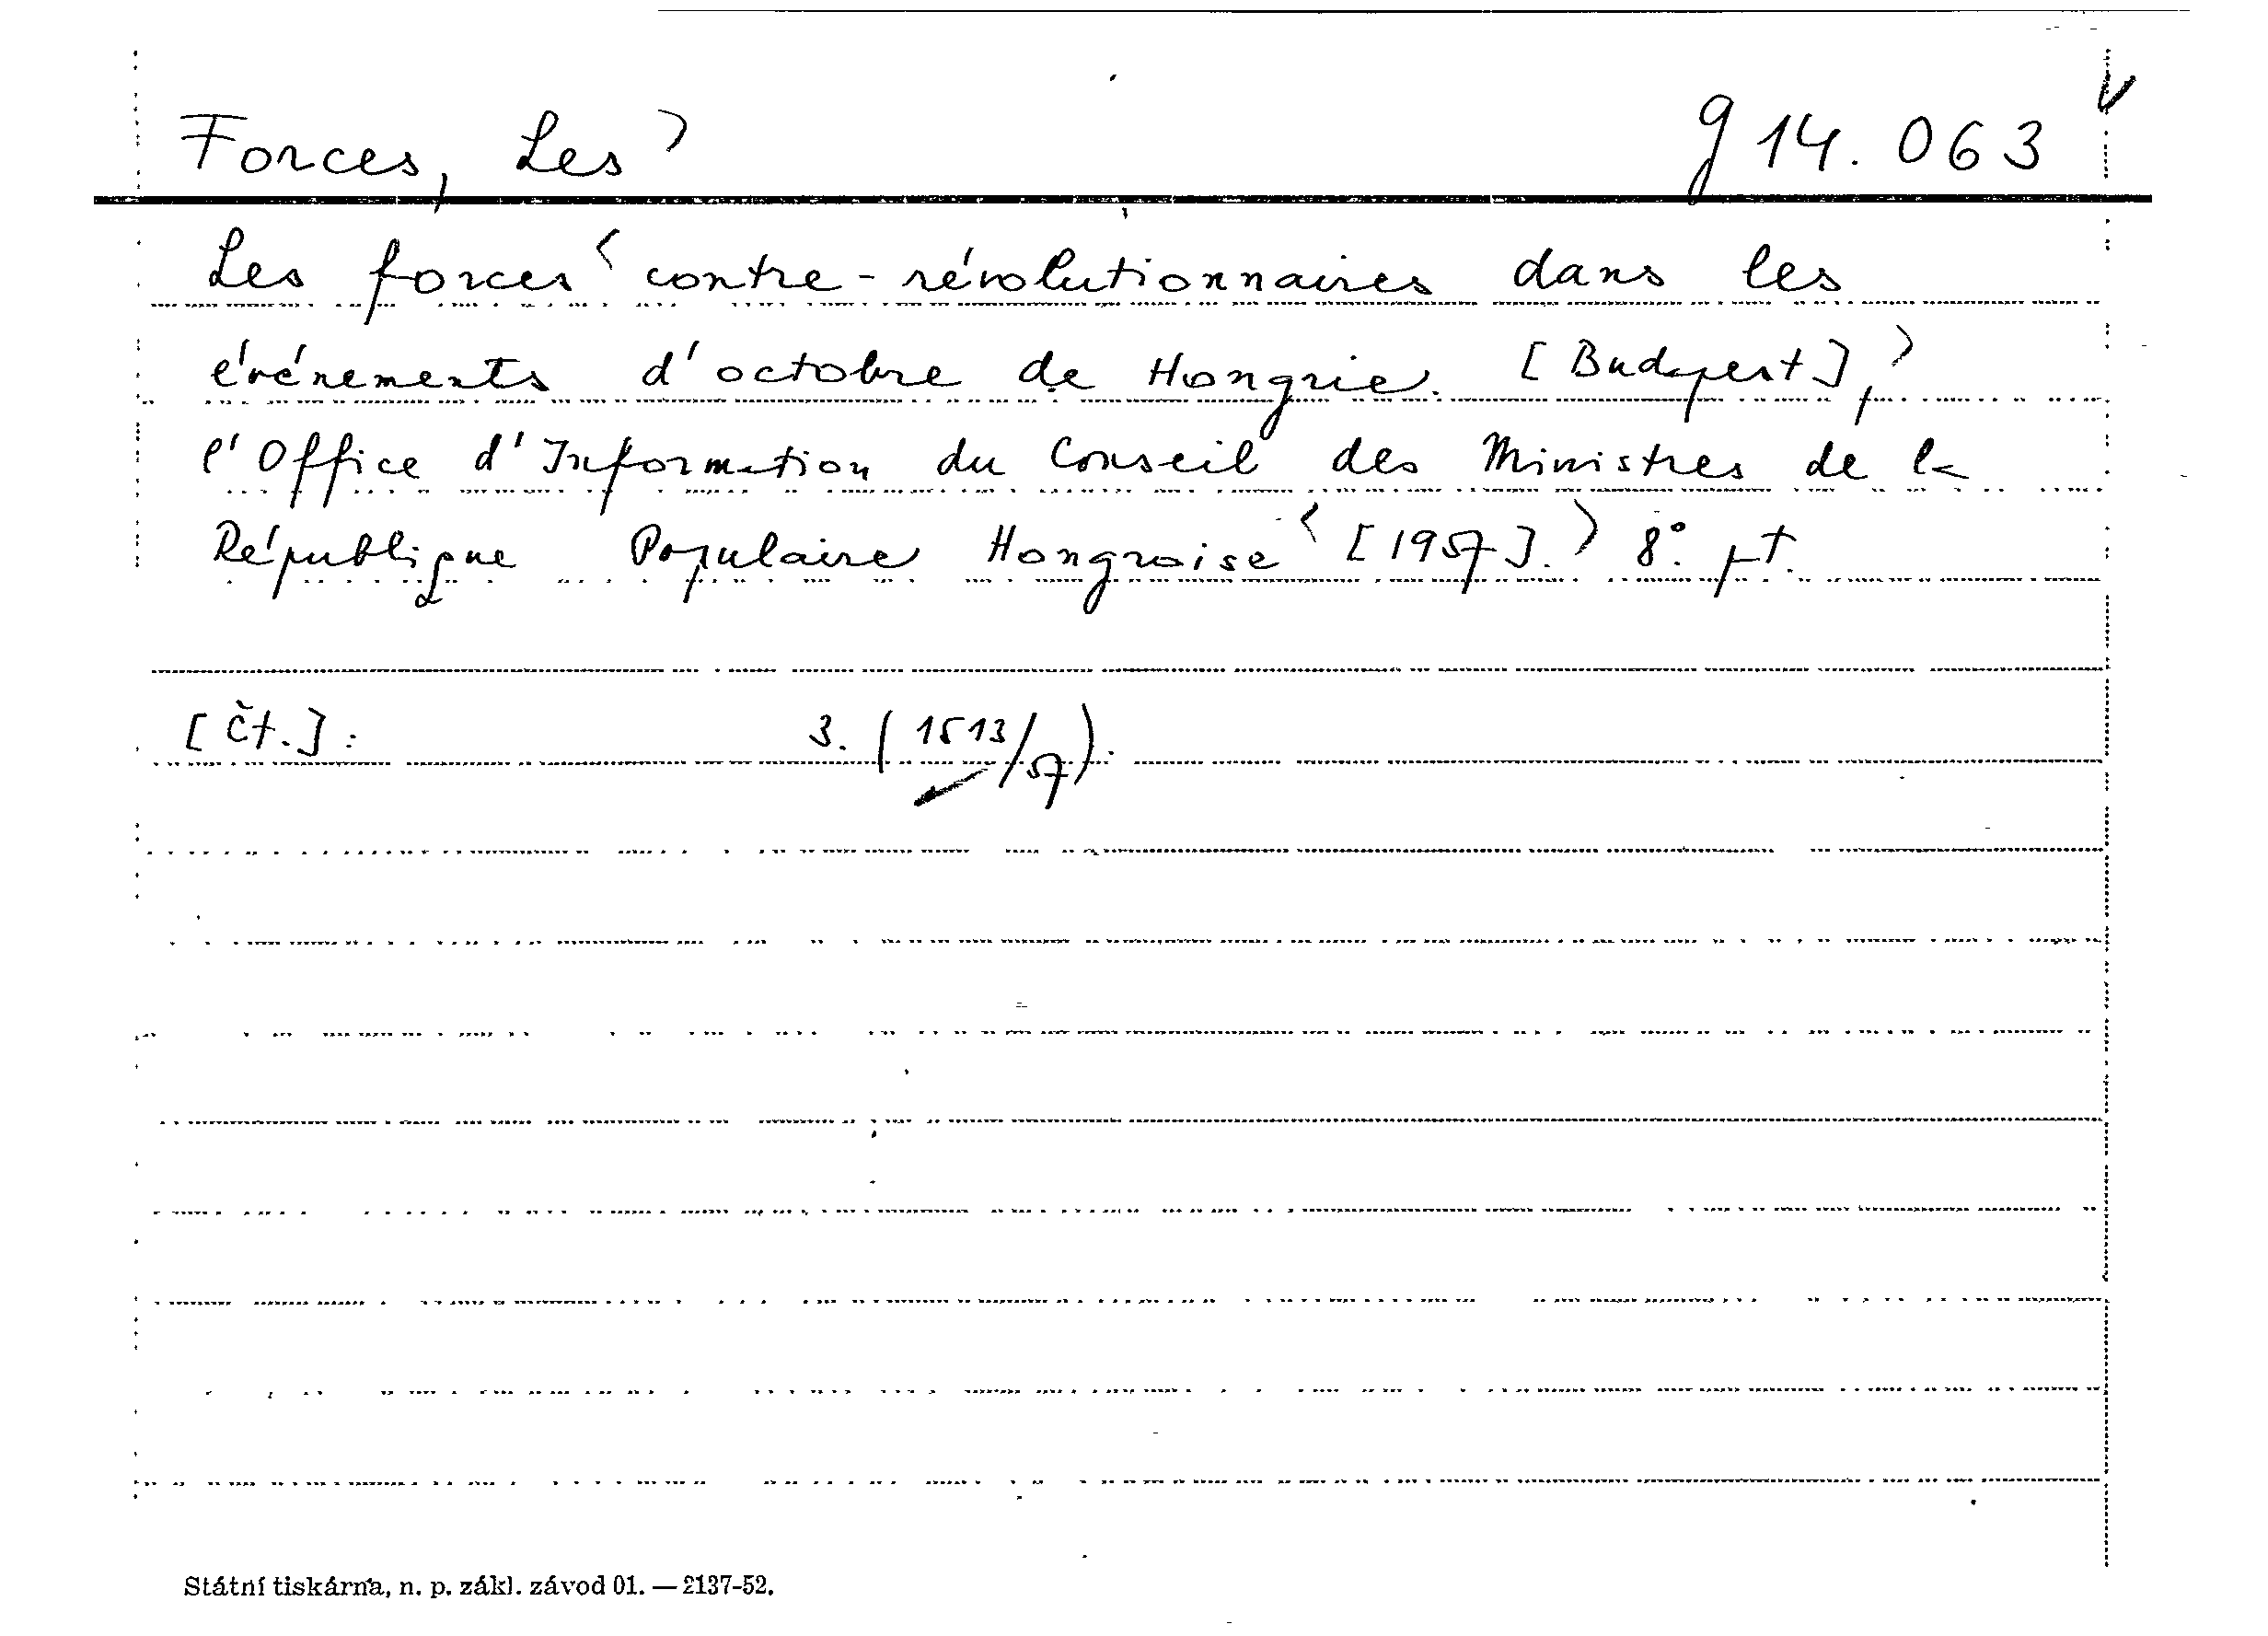 Forces, Les > g 14.063
Les forces < contre-révolutionnaires dans les
événements d'octobre de Hongrie. [Budapest], >
l'Office d'Information du Conseil des Ministres de la
République Populaire Hongroise < [1957]. > 8°. pt.
[Čt.]: 3. (1513/57).
Státní tiskárna, n. p. zákl. závod 01. — 2137-52.